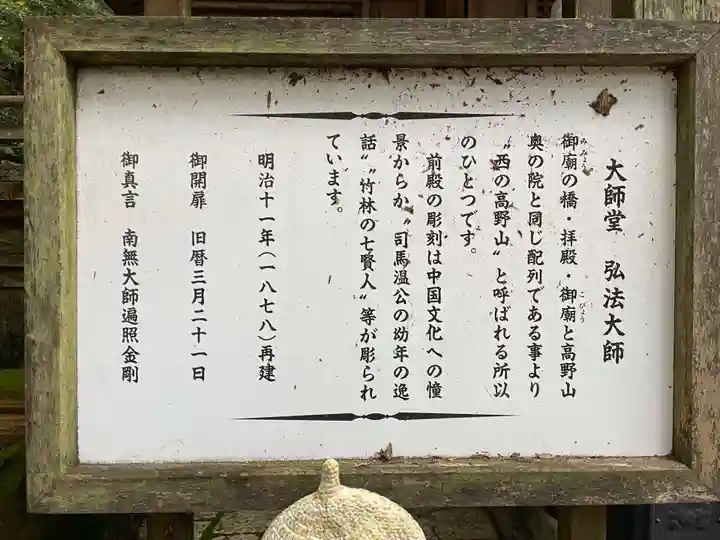 大師堂 弘法大師
御廟の橋・拝殿・御廟と高野山
奥の院と同じ配列である事より
〝西の高野山〟と呼ばれる所以
のひとつです。
前殿の彫刻は中国文化への憧
景からか〝司馬温公の幼年の逸
話〟〝竹林の七賢人〟等が彫られ
ています。
明治十一年(一八七八)再建
御開扉 旧暦三月二十一日
御真言 南無大師遍照金剛